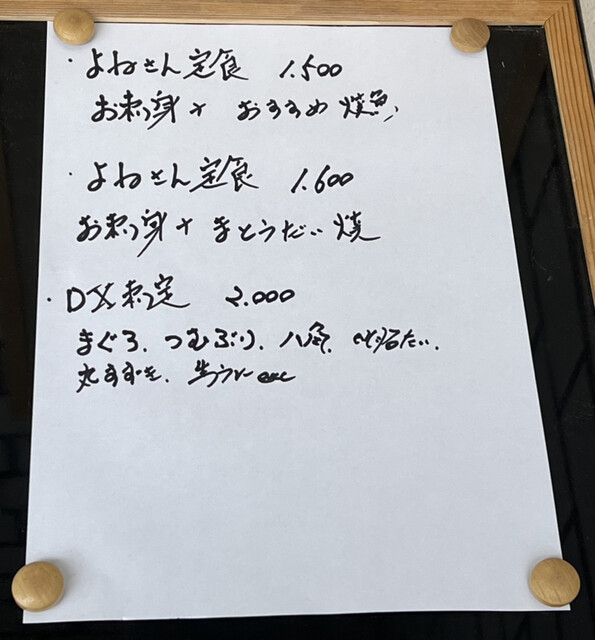 ・よねさん定食 1.500
お刺身+おすすめ焼魚
・よねさん定食 1.600
お刺身+まとうだい焼
・DX刺定 2.000
まぐろ、つむぶり、八角、たい、
丸すずき、生うに etc